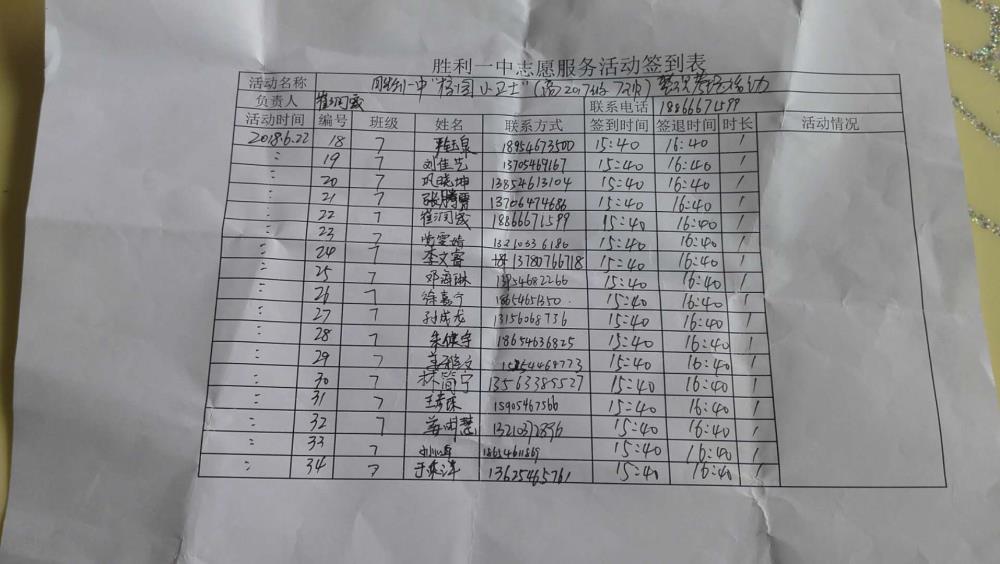 胜利一中志愿服务活动签到表
活动名称 胜利一中"校园小卫士"(高2017级7班)
负责人 崔润成 联系电话 18866671599
活动时间 编号 班级 姓名 联系方式 签到时间 签退时间 时长 活动情况
2018.6.22 18 7 18954673500 15:40 16:40 1
〃 19 7 刘佳艺 13705469167 15:40 16:40 1
〃 20 7 巩晓坤 13854613104 15:40 16:40 1
〃 21 7 张腾霄 13706474686 15:40 16:40 1
〃 22 7 崔润成 18866671599 15:40 16:40 1
〃 23 7 15:40 16:40 1
〃 24 7 李文睿 13780766718 15:40 16:40 1
〃 25 7 邓海琳 13954682266 15:40 16:40 1
〃 26 7 徐嘉宁 15:40 16:40 1
〃 27 7 孙成龙 13156068736 15:40 16:40 1
〃 28 7 朱健宇 18654636825 15:40 16:40 1
〃 29 7 15:40 16:40 1
〃 30 7 林简宁 13563385527 15:40 16:40 1
〃 31 7 15905467566 15:40 16:40 1
〃 32 7 13210372896 15:40 16:40 1
〃 33 7 18654611869 15:40 16:40 1
〃 34 7 13625465761 15:40 16:40 1